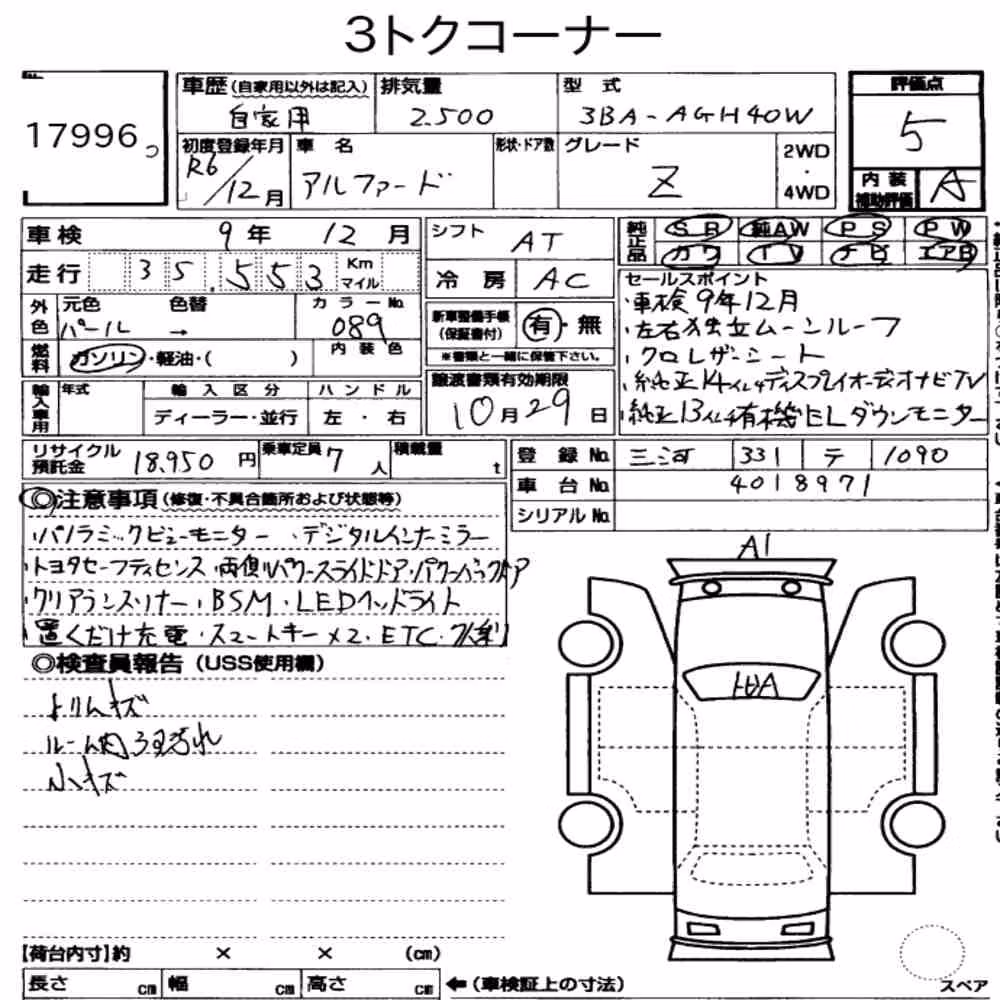 3トクコーナー
17996
車歴(自家用以外は記入) 排気量 型 式 評価点
自家用 2.500 3BA-AGH40W 5
初度登録年月 車 名 形状・ドア数 グレード 2WD・4WD
R6/12月 アルファード Z
内装補助評価 A
車検 9年 12月 シフト AT 純正品 SR 純AW PS PW
走行 35,553 Km マイル 冷房 AC カワ TV ナビ エアB
外色 元色 色替 カラーNo.
パール → 089
燃料 ガソリン・軽油・( ) 内装色
新車整備手帳(保証書付) 有・無
※書類と一緒に保管下さい。
セールスポイント
・車検9年12月
・左右独立ムーンルーフ
・クロレザーシート
・純正14インチディスプレイオーディオナビTV
・純正13インチ有機ELダウンモニター
輸入車用 年式 輸入区分 ハンドル
ディーラー・並行 左・右
譲渡書類有効期限
10月29日
リサイクル預託金 18,950円 乗車定員 7人 積載量 t
登録No. 三河 331 テ 1090
車台No. 4018971
シリアルNo.
◎注意事項(修復・不具合箇所および状態等)
・パノラミックビューモニター ・デジタルインナーミラー
・トヨタセーフティセンス・両側パワースライドドア・パワーバックドア
・クリアランスソナー・BSM・LEDヘッドライト
・置くだけ充電・スマートキー×2・ETC
◎検査員報告(USS使用欄)
トリムキズ
ルーム内
小キズ
A1
【荷台内寸】約 × × (cm)
長さ cm 幅 cm 高さ cm ←(車検証上の寸法)
スペア